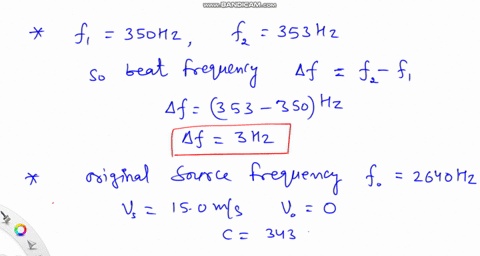 www.BANDICAM.com
* f₁ = 350Hz, f₂ = 353Hz
So beat frequency Δf = f₂ - f₁
Δf = (353 - 350) Hz
Δf = 3Hz
* Original Source frequency f₀ = 2640Hz
Vₛ = 15.0 m/s V₀ = 0
C = 343